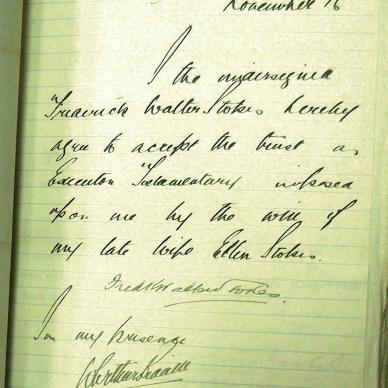 November 16
I the undersigned
Frederick Walter Stokes hereby
agree to accept the trust as
Executor Testamentary imposed
upon me by the will of
my late wife Ellen Stokes.
Fredk Walter Stokes.
In my presence